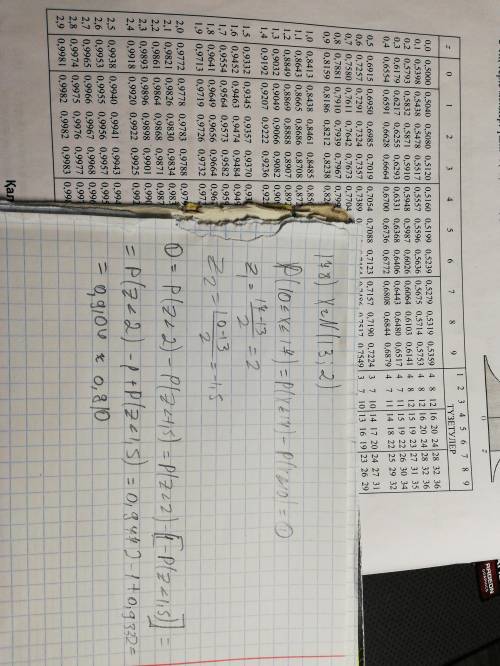 ТҮЗЕТУЛЕР
z 0 1 2 3 4 5 6 7 8 9 1 2 3 4 5 6 7 8 9
0,0 0,5000 0,5040 0,5080 0,5120 0,5160 0,5199 0,5239 0,5279 0,5319 0,5359 4 8 12 16 20 24 28 32 36
0,1 0,5398 0,5438 0,5478 0,5517 0,5557 0,5596 0,5636 0,5675 0,5714 0,5753 4 8 12 16 20 24 28 32 36
0,2 0,5793 0,5832 0,5871 0,5910 0,5948 0,5987 0,6026 0,6064 0,6103 0,6141 4 8 12 15 19 23 27 31 35
0,3 0,6179 0,6217 0,6255 0,6293 0,6331 0,6368 0,6406 0,6443 0,6480 0,6517 4 7 11 15 19 22 26 30 34
0,4 0,6554 0,6591 0,6628 0,6664 0,6700 0,6736 0,6772 0,6808 0,6844 0,6879 4 7 11 14 18 22 25 29 32
0,5 0,6915 0,6950 0,6985 0,7019 0,7054 0,7088 0,7123 0,7157 0,7190 0,7224 3 7 10 14 17 20 24 27 31
0,6 0,7257 0,7291 0,7324 0,7357 0,7389 0,7517 0,7549 3 7 10 13 16 19 23 26 29
0,7 0,7580 0,7611 0,7642 0,7673 0,7704
0,8 0,7881 0,7910 0,7939 0,7967
0,9 0,8159 0,8186 0,8212 0,8238
1,0 0,8413 0,8438 0,8461 0,8485
1,1 0,8643 0,8665 0,8686 0,8708
1,2 0,8849 0,8869 0,8888 0,8907
1,3 0,9032 0,9049 0,9066 0,9082
1,4 0,9192 0,9207 0,9222 0,9236
1,5 0,9332 0,9345 0,9357 0,9370
1,6 0,9452 0,9463 0,9474 0,9484
1,7 0,9554 0,9564 0,9573 0,9582
1,8 0,9641 0,9649 0,9656 0,9664
1,9 0,9713 0,9719 0,9726 0,9732
2,0 0,9772 0,9778 0,9783 0,9788
2,1 0,9821 0,9826 0,9830 0,9834
2,2 0,9861 0,9864 0,9868 0,9871
2,3 0,9893 0,9896 0,9898 0,9901
2,4 0,9918 0,9920 0,9922 0,9925
2,5 0,9938 0,9940 0,9941 0,9943
2,6 0,9953 0,9955 0,9956 0,9957
2,7 0,9965 0,9966 0,9967 0,9968
2,8 0,9974 0,9975 0,9976 0,9977
2,9 0,9981 0,9982 0,9982 0,9983
Қал
148) X~N(13,2)
P(10≤X≤17)=P(X≤17)-P(X≤10)=①
Z=17-13/2=2
Z₂=10-13/2=-1,5
①=P(Z<2)-P(Z<1,5)=P(Z<2)-[1-P(Z<1,5)]=
=P(Z<2)-1+P(Z<1,5)=0,9772-1+0,9332=
=0,9104≈0,910